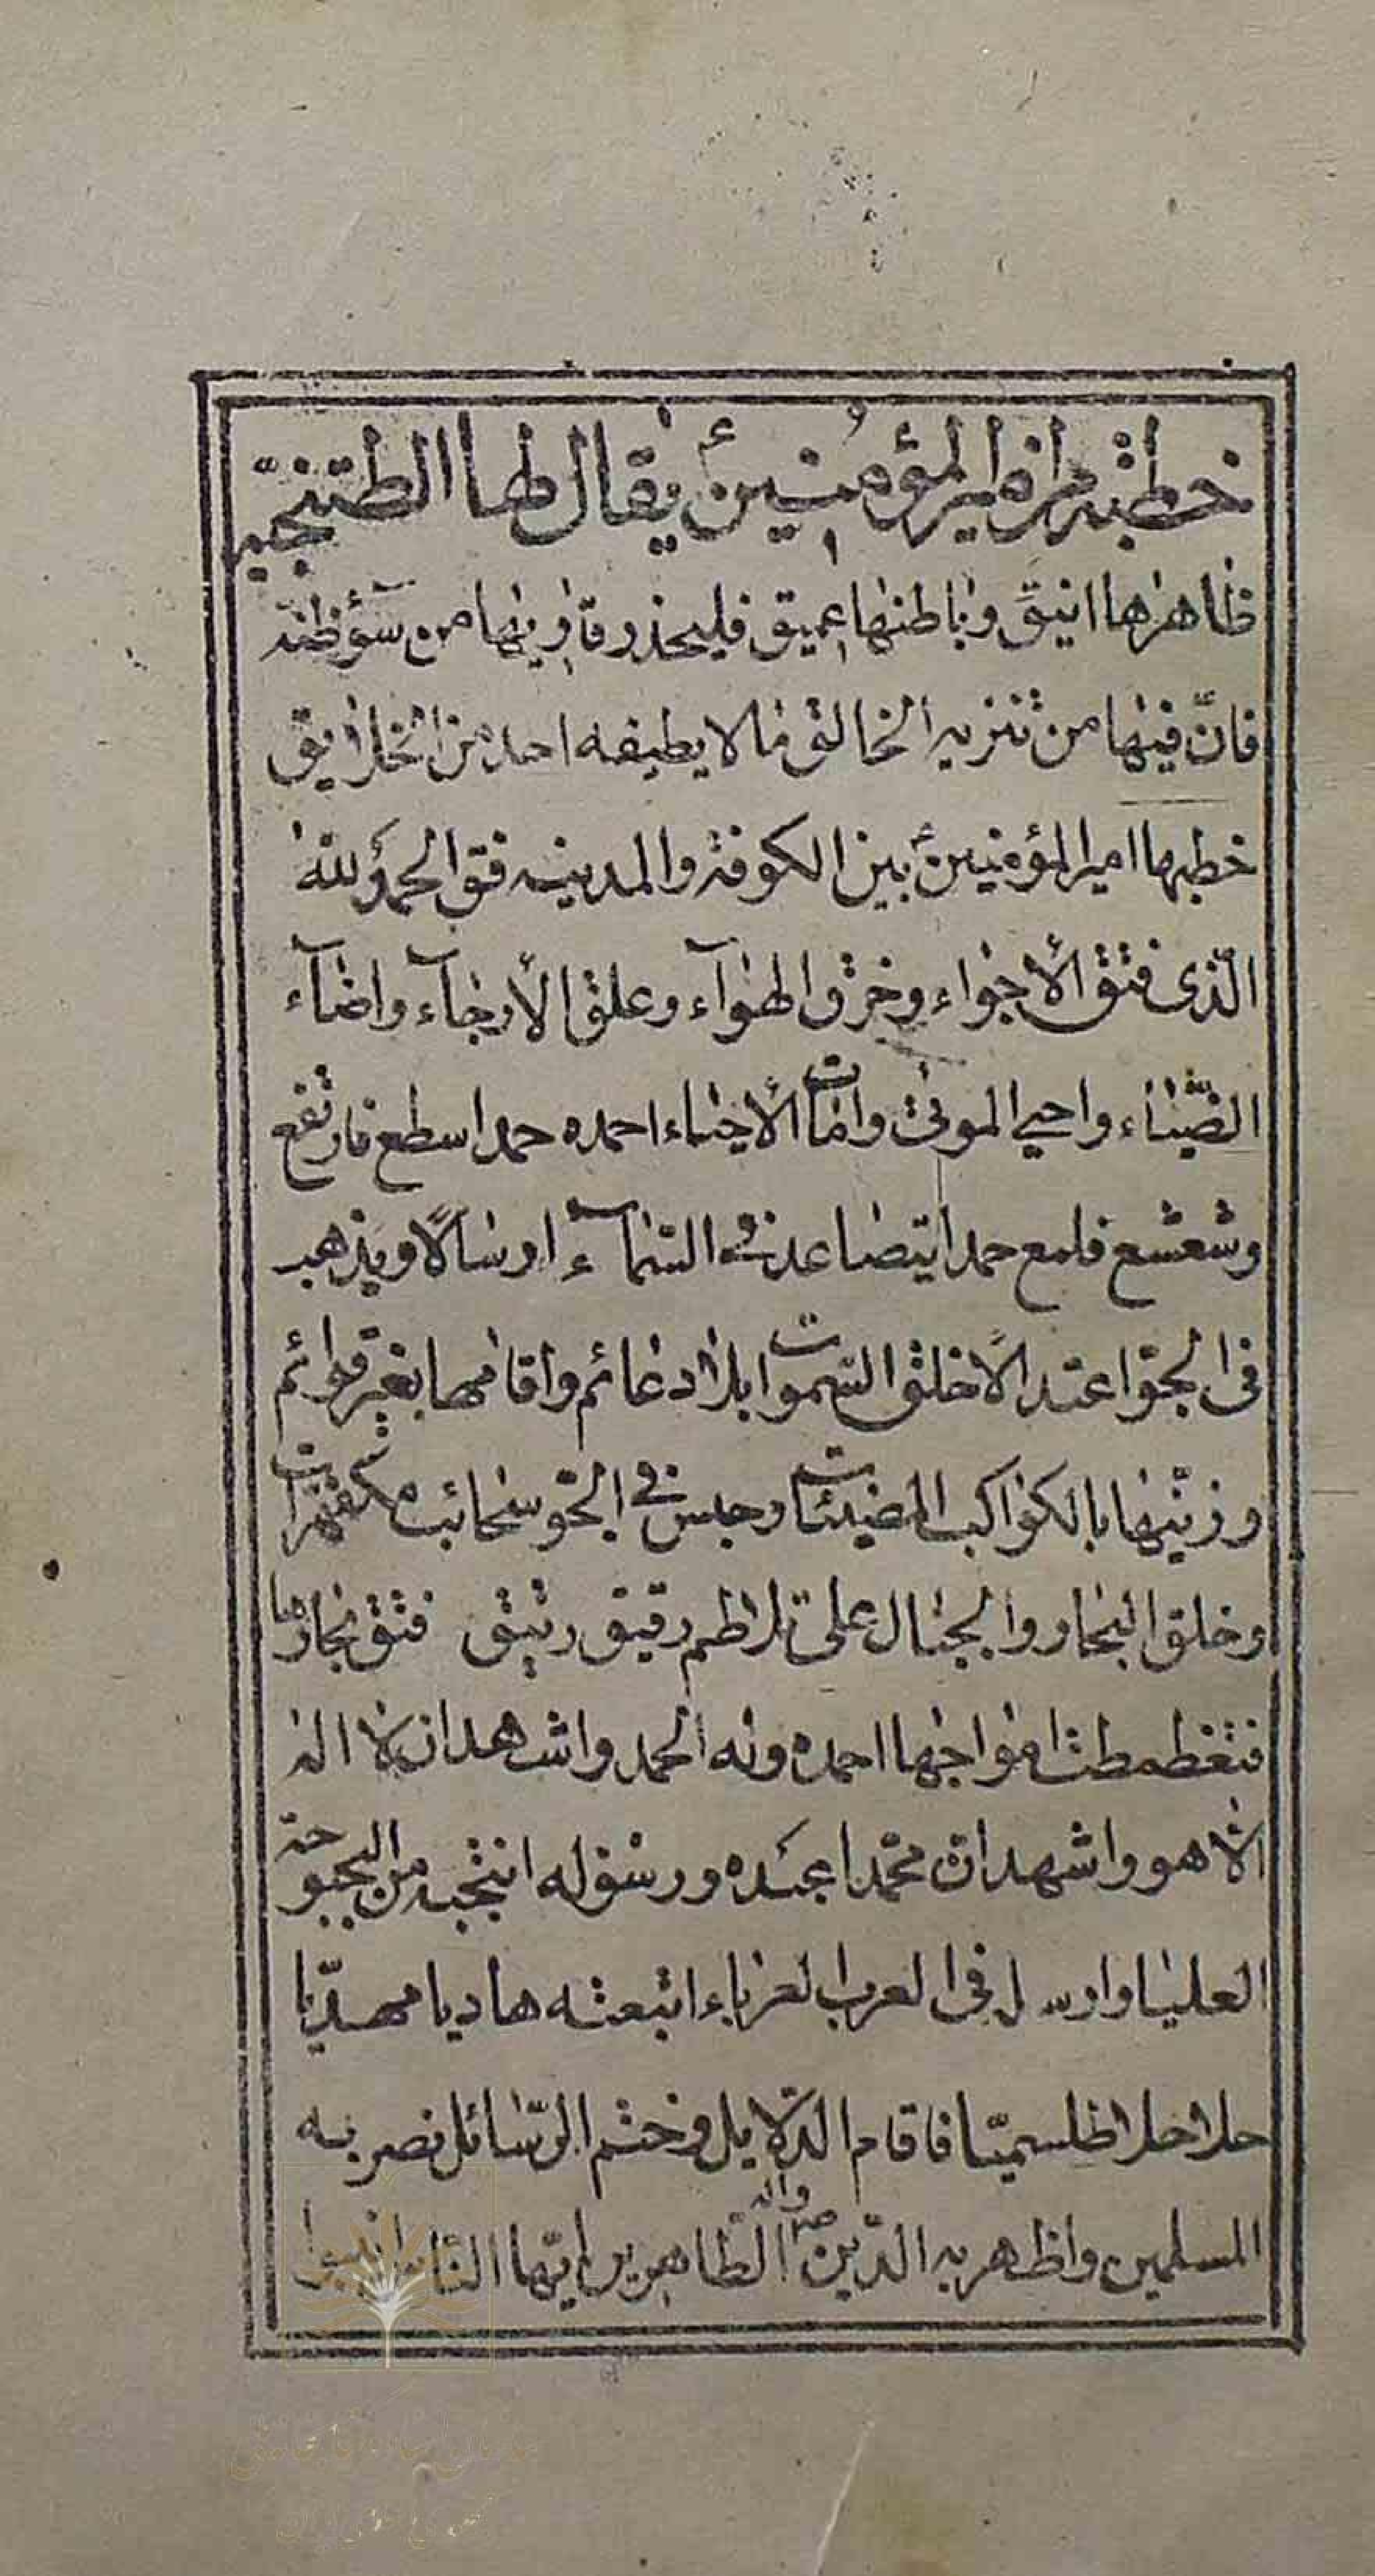 خطبة من امير المؤمنين ع يقال لها الطتنجيّه
ظاهرها انيق وباطنها عميق فليحذر قاريها من سوء ظنه
فانّ فيها من تنزيه الخالق ما لا يطيقه احد من الخلايق
خطبها امير المؤمنين ع بين الكوفة والمدينه فق الحمد لله
الّذى فتق الأجواء وخرق الهوآء وعلق الأرجآء واضآء
الضّياء واحيي الموتى وامات الأحياء احمده حمدا سطع فارتفع
وشعشع فلمع حمدا يتصاعد في السّمآء ارسالًا ويذهب
فى الجوّ اعتدالًا خلق السّموات بلا دعائم واقامها بغير قوائم
وزيّنها بالكواكب المضيئات وحبس في الجوّ سحائب مكفهرات
وخلق البحار والجبال على تلاطم رقيق رتيق فتق رتاجها
فتغطمطت امواجها احمده وله الحمد واشهد ان لا اله
الّا هو واشهد انّ محمّدا عبده ورسوله انتجبه من البحبوحة
العليا وارسله فى العرب العرباء ابتعثه هاديا مهديّا
حلاحلا طلسميّا فاقام الدّلايل وختم الرّسائل نصر به
المسلمين واظهر به الدّين ص واله الطّاهرين ايّها النّاس